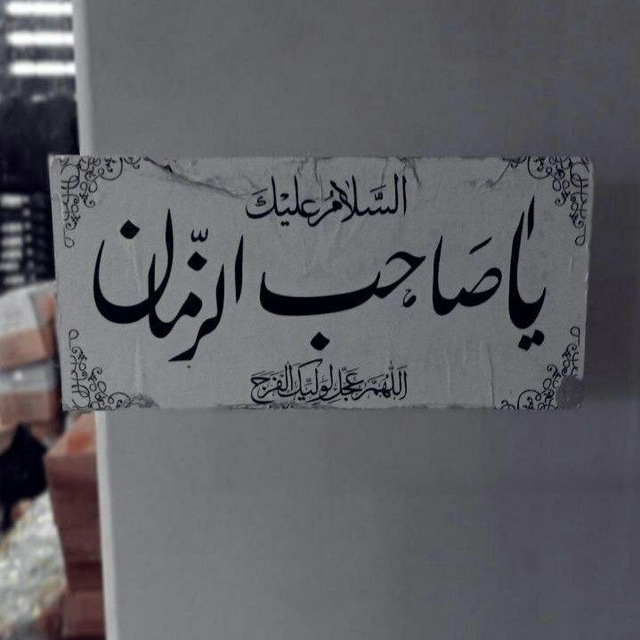 السَّلامُ عَلَيْكَ
يا صَاحِبَ الزَّمان
اَللّهُمَّ عَجِّل لِوَلِيِّكَ الفَرَج